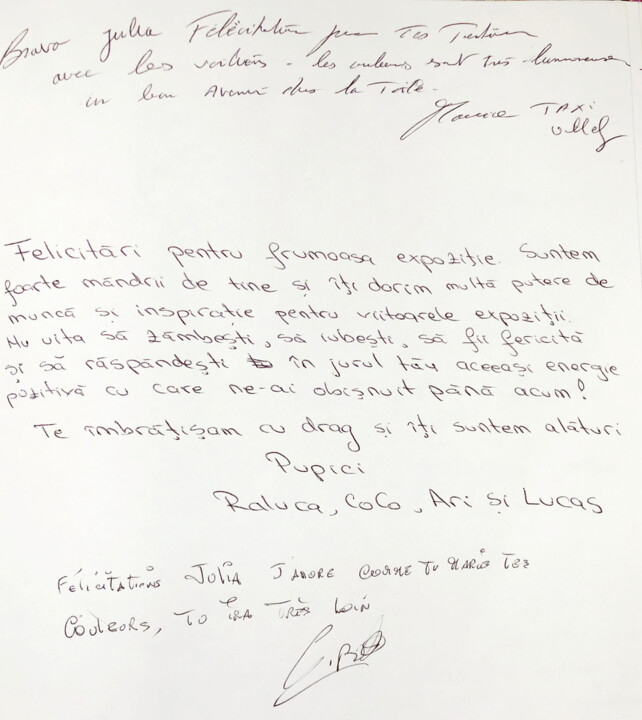 Bravo Julia Félécitation pour Tes
avec les voiliers - les couleurs sont très lumineuses
un bon Avenir dans la Toile.
Maurice TAXI
Felicitări pentru frumoasa expoziție. Suntem
foarte mândrii de tine și îți dorim multă putere de
muncă si inspirație pentru viitoarele expoziții.
Nu uita să zâmbești, să iubești, să fii fericită
și să răspândești în jurul tău aceeași energie
pozitivă cu care ne-ai obișnuit până acum!
Te îmbrățișam cu drag și îți suntem alături
Pupici
Raluca, CoCo, Ari și Lucas
Félicitations Julia J'adore comme tu marie tes
couleurs, tu ira très loin